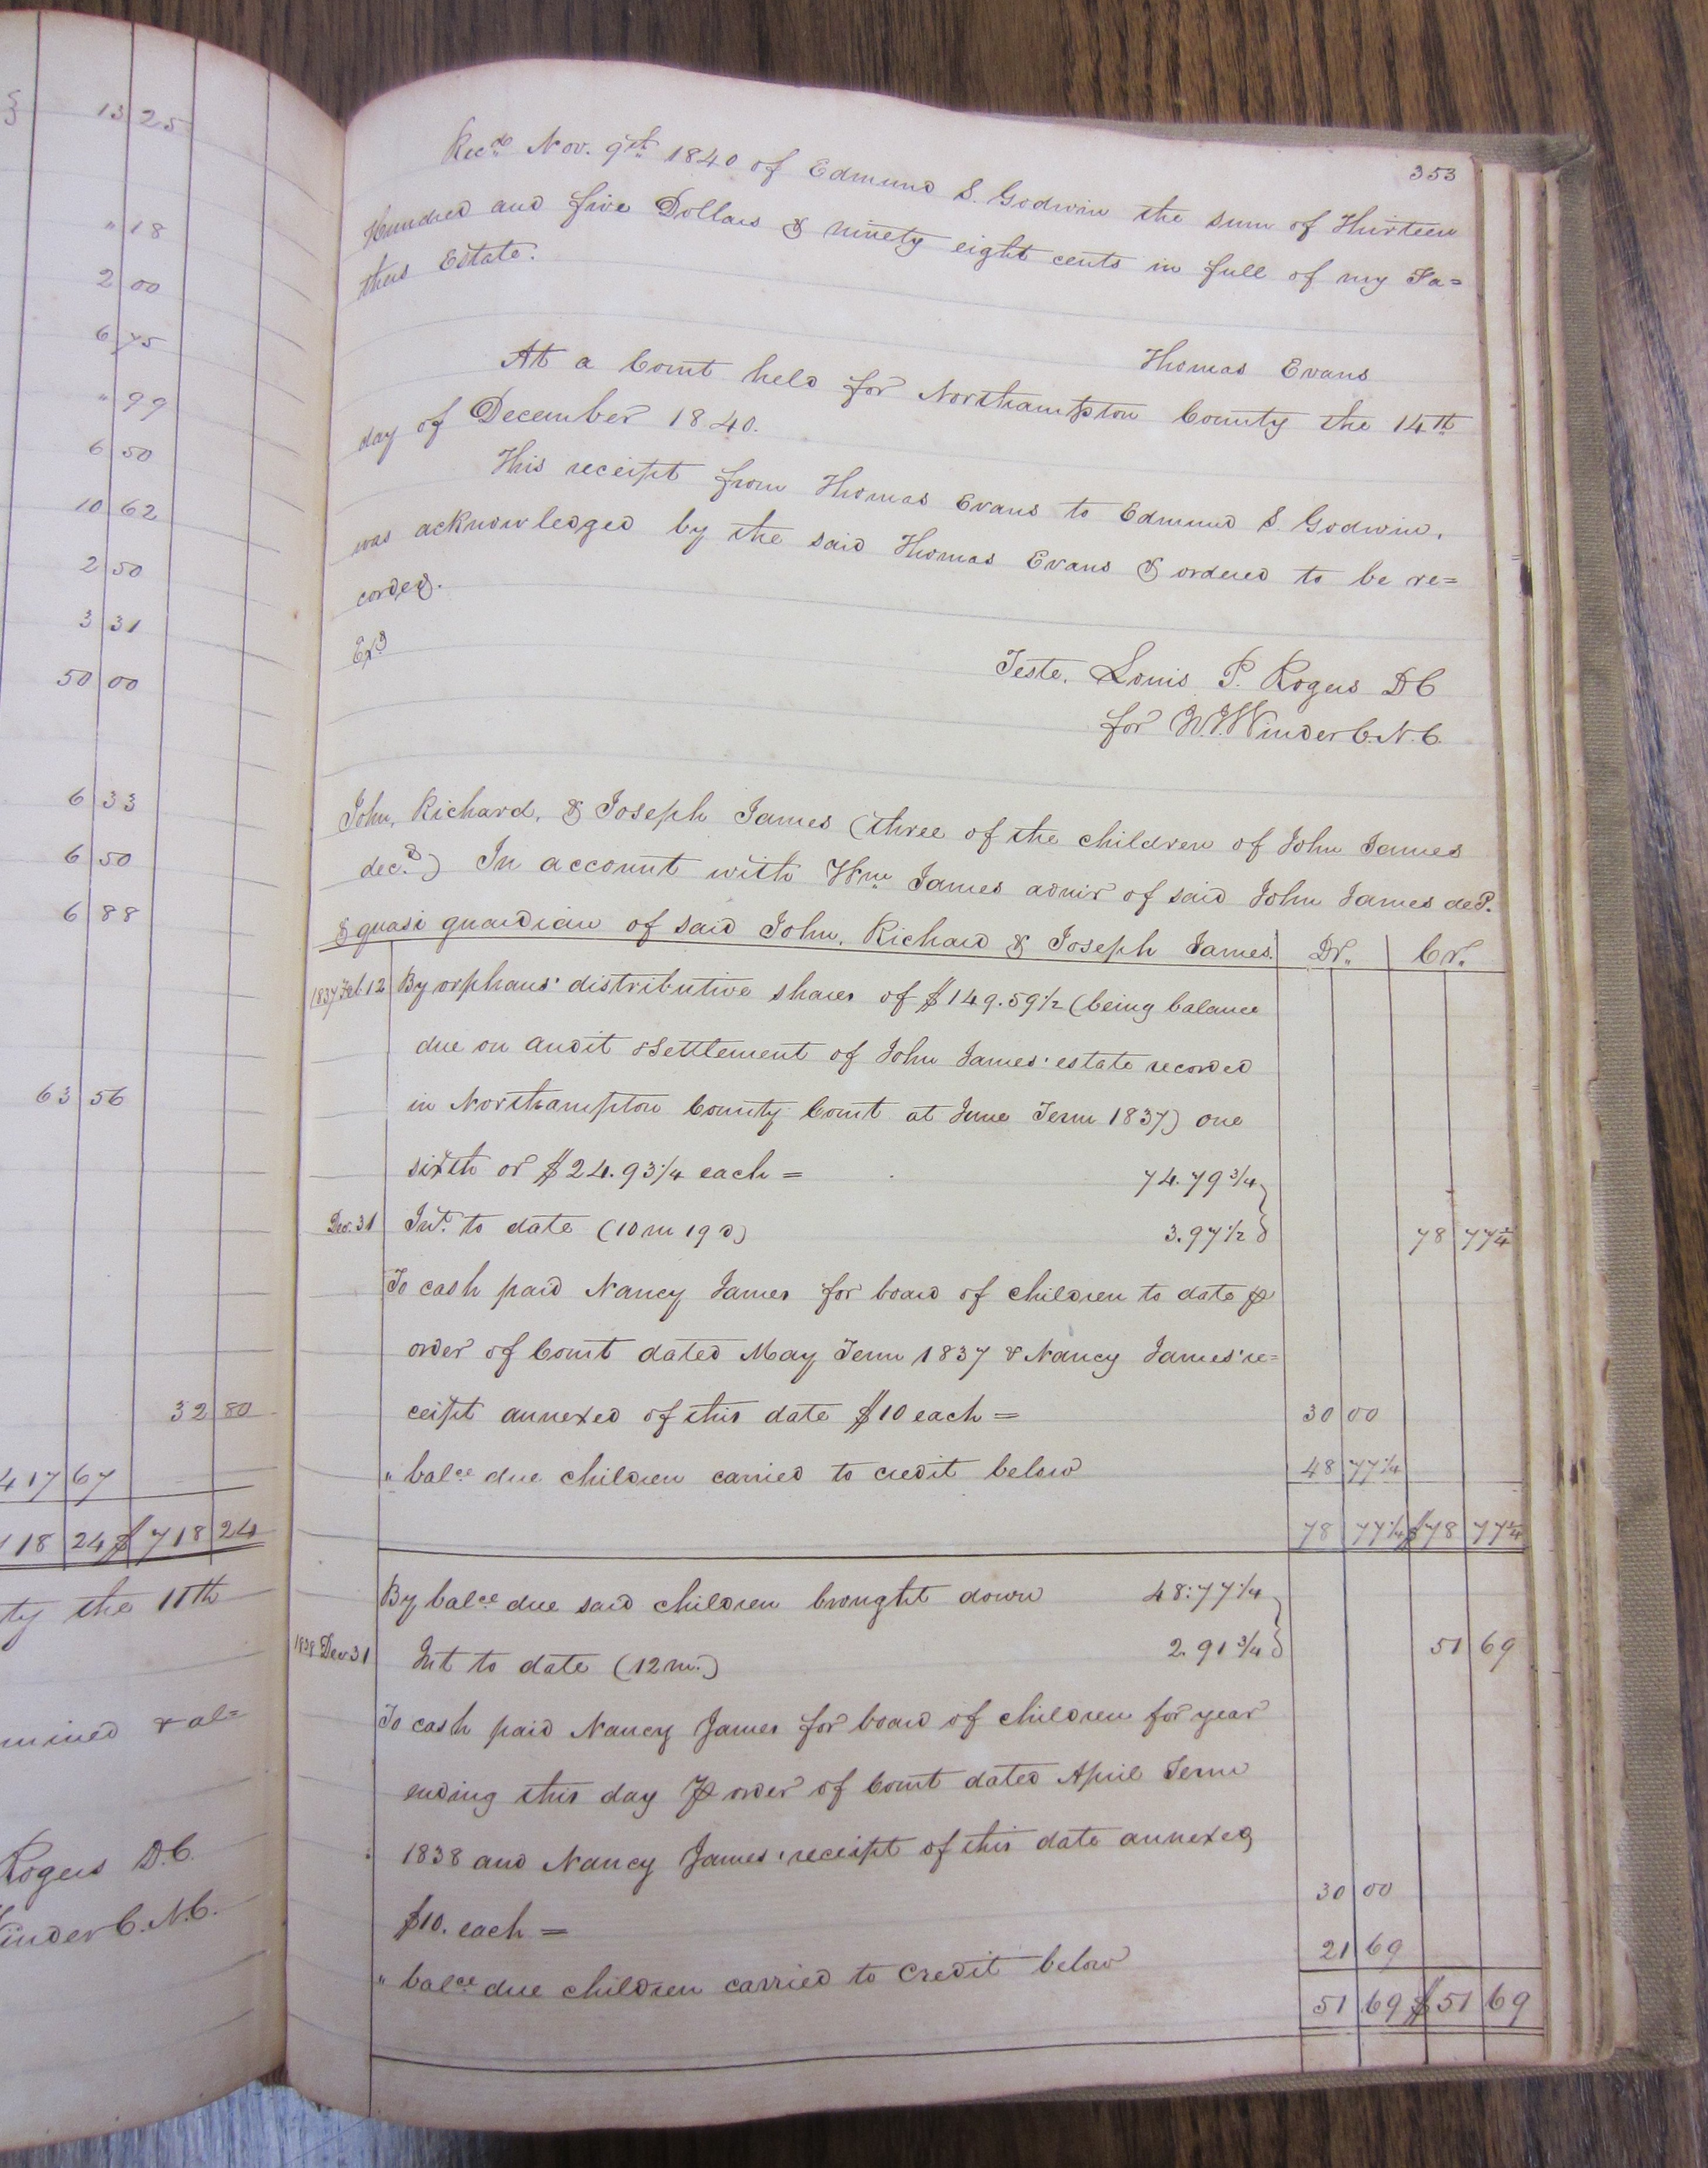 13 25
" 18
2 00
6 75
" 99
6 50
10 62
2 50
3 31
50 00
6 33
6 50
6 88
63 56
32 80
417 67
118 24 $ 718 24
ty the 11th
mined & al=
Rogers D.C.
inder C.N.C.
353
Recd. Nov. 9th 1840 of Edmund S. Godwin the sum of Thirteen
Hundred and five Dollars & ninety eight cents in full of my Fa=
thers Estate.
Thomas Evans
At a Court held for Northampton County the 14th
day of December 1840.
This receipt from Thomas Evans to Edmund S. Godwin,
was acknowledged by the said Thomas Evans & ordered to be re=
corded.
Exd
Teste, Louis P. Rogers DC
for W.J. Winder C.N.C.
John, Richard, & Joseph James (three of the children of John James
decd.) In account with Wm. James admr of said John James decd.
& quasi guardian of said John, Richard & Joseph James. Dr. Cr.
1837 Feb 12 By orphans' distributive shares of $149.59½ (being balance
due on audit & settlement of John James' estate recorded
in Northampton County Court at June Term 1837) one
sixth or $24.93¼ each = 74.79¾
Dec. 31 Int. to date (10 m 19 d) 3.97½ 78 77¼
To cash paid Nancy James for board of children to date p
order of Court dated May Term 1837 & Nancy James' re=
ceipt annexed of this date $10 each = 30 00
" balce due children carried to credit below 48 77¼
78 77¼ $78 77¼
By balce due said children brought down 48.77¼
1838 Dec 31 Int to date (12 m.) 2.91¾ 51 69
To cash paid Nancy James for board of children for year
ending this day p order of Court dated April Term
1838 and Nancy James' receipt of this date annexed
$10. each = 30 00
" balce due children carried to credit below 21 69
51 69 $51 69